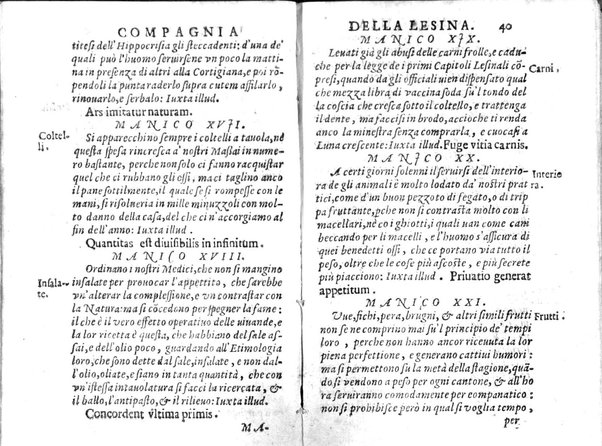 COMPAGNIA
titesi dell'Hippocrisia gli steccadenti: d'una de'
quali può l'huomo seruirsene vn poco la matti
na in presenza di altri alla Cortigiana, e poi rō-
pendoli la punta raderlo supra cutem affilarlo,
rinouarlo, e serbalo: Iuxta illud.
Ars imitatur naturam.
MANICO XVII.
Coltel-
li.
Si apparecchino sempre i coltelli a tauola, nè
questa spesa rincresca a' nostri Massai in nume-
ro bastante, perche non solo ci fanno racquistar
quel che ci rubbano gli ossi, ma ci taglino anco
il pane sottilmente, il quale se si rompesse con le
mani, si risolueria in mille minuzzoli con mol-
to danno della casa, del che ci n'accorgiamo al
fin dell'anno: Iuxta illud.
Quantitas est diuisibilis in infinitum.
MANICO XVIII.
Insala-
te.
Ordinano i nostri Medici, che non si mangino
insalate per prouocar l'appettito, che sarebbe
vn'alterar la complessione, e vn contrastar con
la Natura: ma si cōcedono per spegner la fame:
il che è il vero effetto operatiuo delle viuande, e
la lor ricetta è questa, che habbiano del sale as-
sai, e dell'olio poco, guardando all'Etimologia
loro, che son dette dal sale, insalate, e non dal-
l'olio, oliate, e siano in tanta quantità, che con
vn'istessa intauolatura si facci la ricercata, &
il ballo, l'antipasto, & il rilieuo: Iuxta illud.
Concordent vltima primis.
MA-
DELLA LESINA. 40
MANICO XIX.
Leuati già gli abusi delle carni frolle, e cadu-
che per la legge de i primi Capitoli Lesinali cō-
presi, quando da gli officiali vien dispensato qual
che mezza libra di vaccina soda su'l tondo del
la coscia che cresca sotto il coltello, e trattenga
il dente, ma faccisi in brodo, accioche ti renda
anco la minestra senza comprarla, e cuocasi a
Luna crescente: Iuxta illud. Fuge vitia carnis.
Carni.
MANICO XX.
A certi giorni solenni il seruirsi dell'interio-
ra de gli animali è molto lodato da' nostri prat
tici, come d'un buon pezzotto di fegato, o di trip
pa fruttante, pche non si contrasta molto con li
macellari, nè co i ghiotti, i quali uan come cani
beccando per li macelli, e l'huomo s'assicura di
quei benedetti ossi, che ce portan via tutto il
peso, oltre che le cose più ascoste, e più secrete
più piacciono: Iuxta illud. Priuatio generat
appetitum.
Interio
ra.
MANICO XXI.
Vue, fichi, pera, brugni, & altri simili frutti
non se ne comprino mai su'l principio de' tempi
loro, perche non hanno ancor riceuuta la lor
piena perfettione, e generano cattiui humori:
ma si permettono su la metà della stagione, quā-
do si vendono a peso per ogni cantone, & all'ho
ra seruiranno comodamente per companatico:
non si prohibisce però in qual si voglia tempo,
Frutti.
per